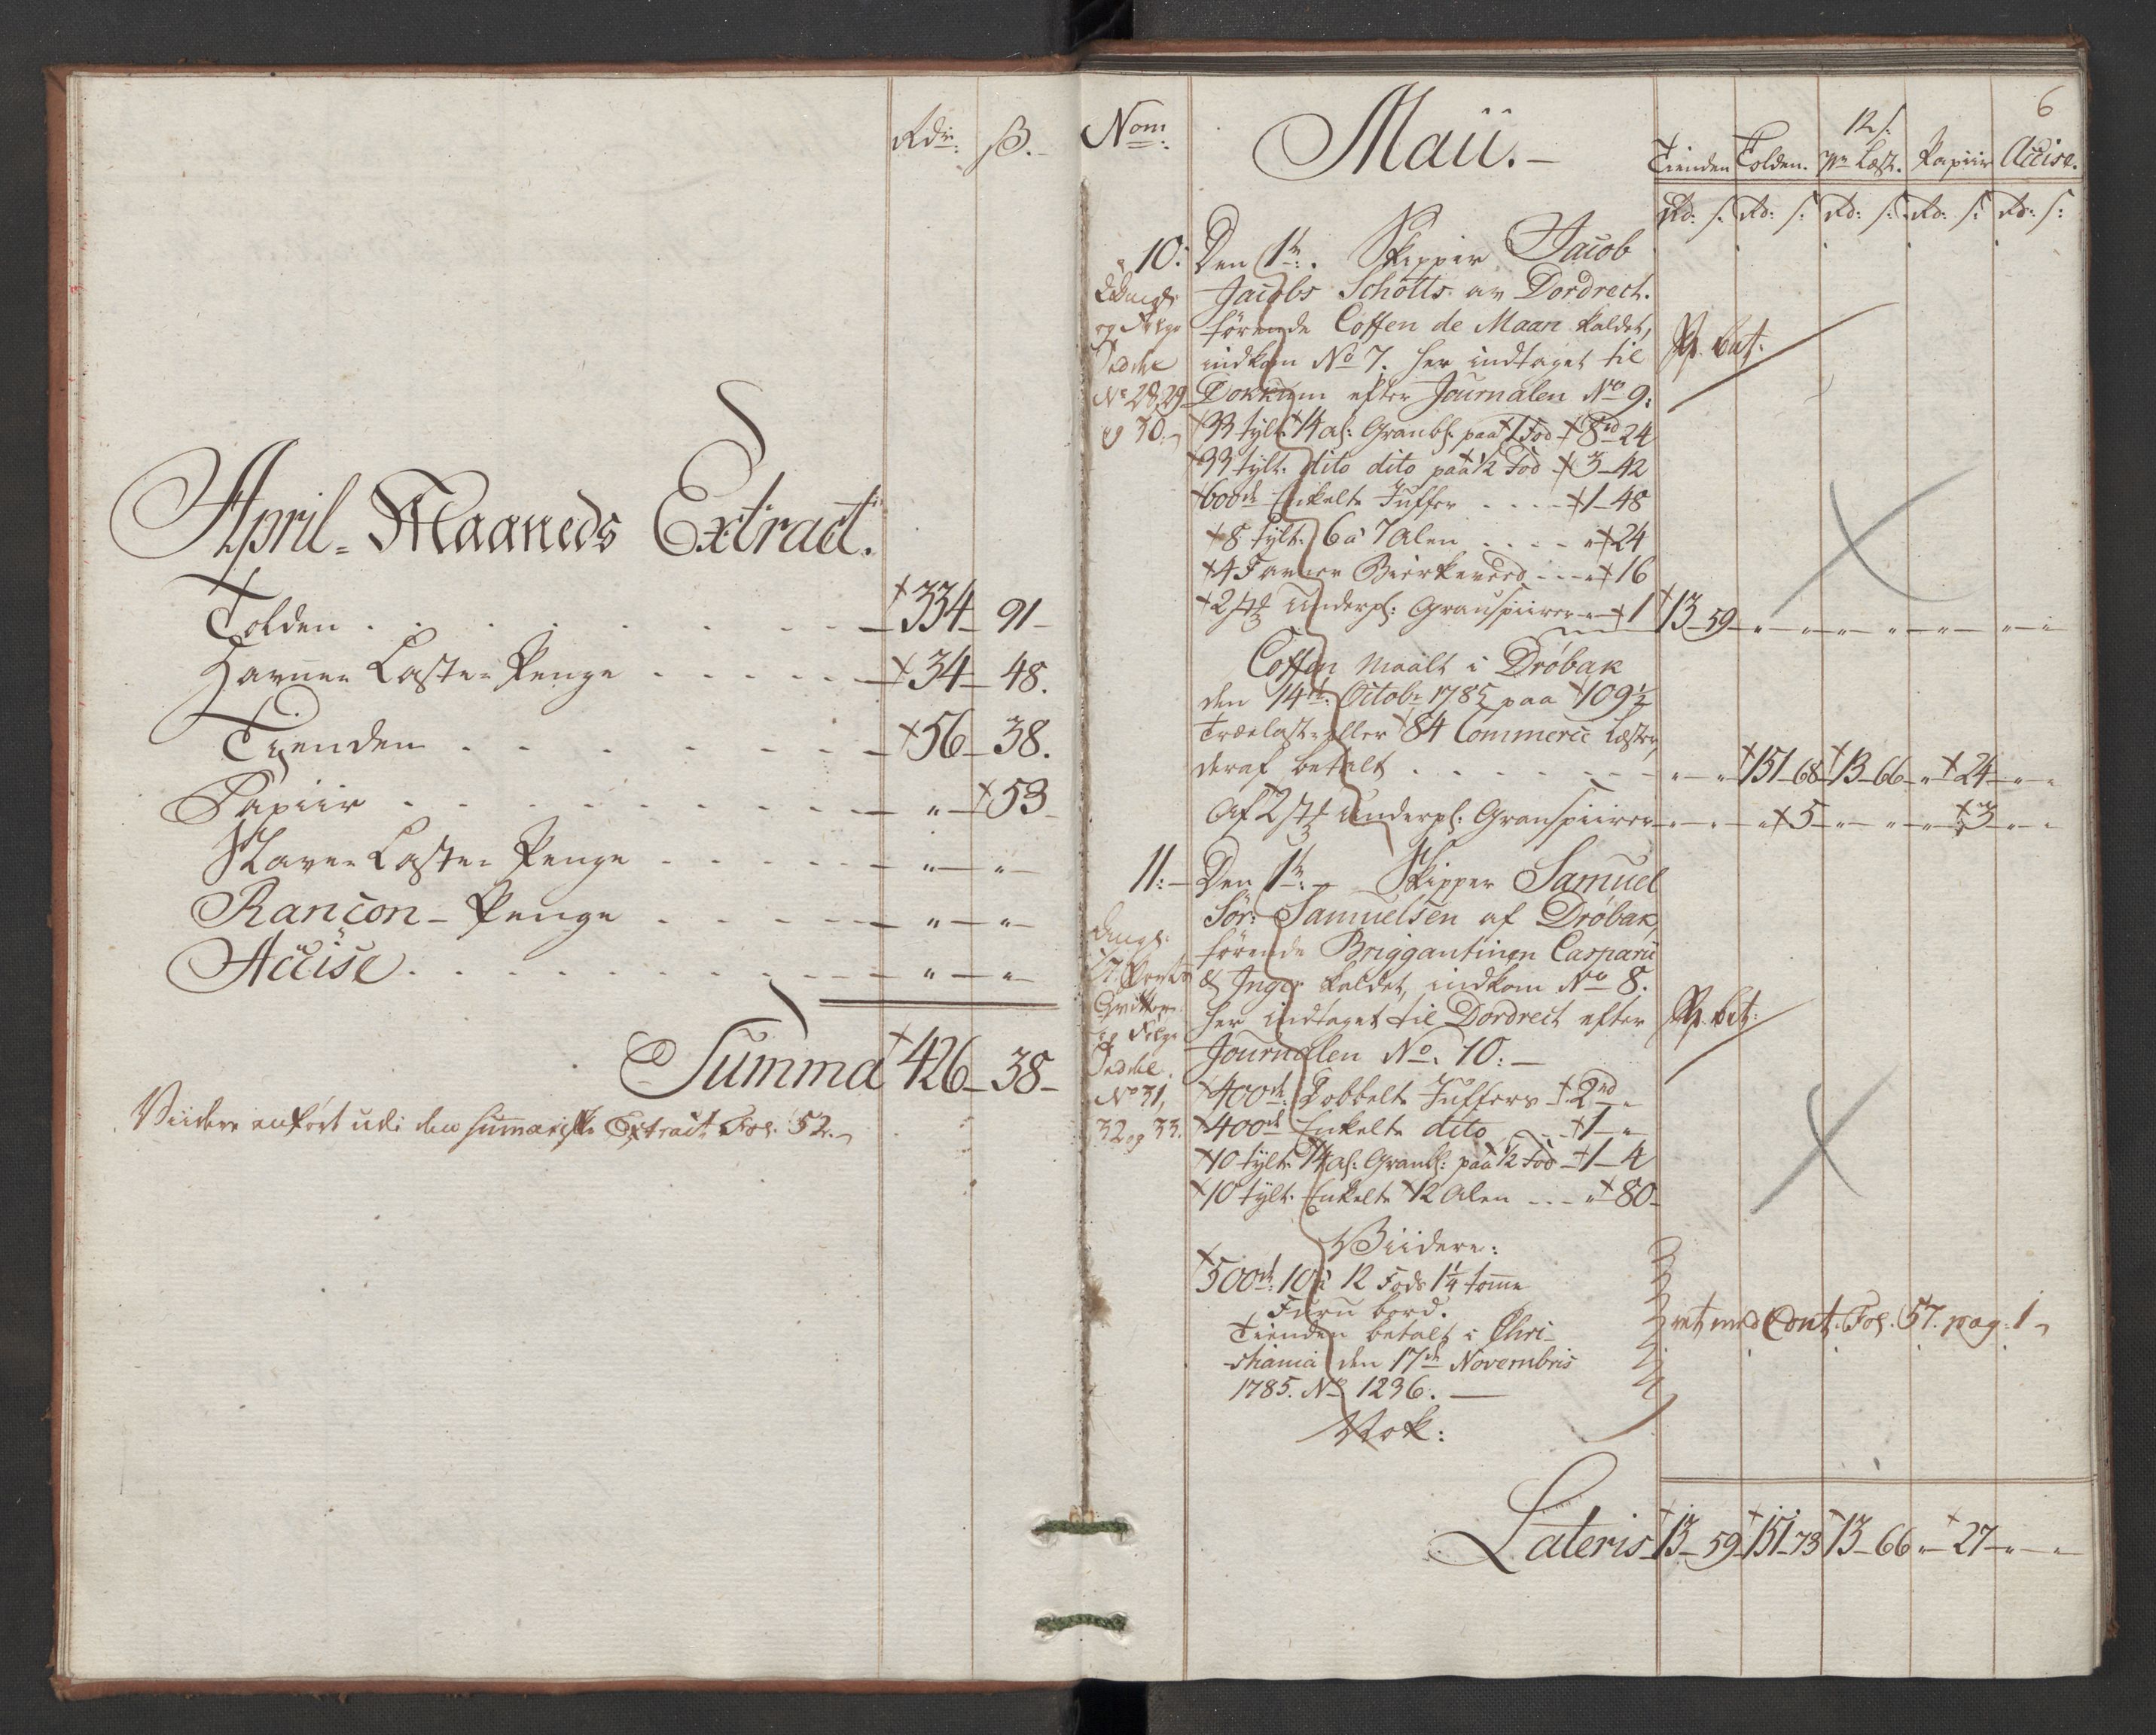 Rdr: ß.
April-Maaneds Extract.
Tolden . . . . . . . . 334 – 91 –
Havne Laste-Penge . . . . . 34 – 48.
Tienden . . . . . . . . 56 – 38.
Papiir . . . . . . . . „ – 53 –
Slaver Laste-Penge . . . . . „ – „ –
Rançon-Penge . . . . . „ – „ –
Accise . . . . . . . . „ – „ –
Summa 426 – 38 –
Viidere anført udi den Summariske Extract Fol: 52.
6
Nom: Maii. – Tienden Tolden. 12 s: pr Læst. Papiir Accise.
Rd: s: Rd: s: Rd: s: Rd: s: Rd: s:
10: Den 1te: Skipper Jacob
Jacobs Schotts av Dordrect.
og Følge førende Coffen de Maan kaldet,
Seddel indkom No 7. her indtaget til
No 28, 29 Dokkum efter Journalen No 9:
og 30. 33 tylt 14 al: Granbl: paa 1 Fod 8rd 24
33 tylt. dito dito paa ½ Fod 3 – 42
600de Enkelte Juffer . . . . 1 – 48
8 tylt. 6 a 7 Alen . . . . „ 24
4 Favner Birkeveed . . . „ 16
2 st: Underpl: Granspiirer „ 1 13 – 59 – „ – „ – „ – „ – „ – „ – „
Coffen Maalt i Drøbak
den 14de: Octobr 1785 paa 109½
Trælaster eller 84 Commerce Læster,
deraf betalt . . . . . . „ – „ 151 – 68 – 13 – 66 – „ 24 – „ – „
Af 2 st: Underpl: Granspiirer – „ – „ – „ 5 – „ – „ – „ 3 – „ – „
11: – Den 1te: – Skipper Samuel
Sør: Samuelsen af Drøbak,
førende Briggantinen Casparii
& Inger kaldet, indkom No 8.
og Følge her indtaget til Dordrect efter
Seddel Journalen No. 10: –
No 31, 400de: Dobbelte Juffers 2rd „
32 og 33. 400de Enkelte dito . . . 1 – „
10 tylt 14 al: Granbl: paa ½ Fod – 1 – 4
10 tylt. Enkelte 12 Alen . . . „ 80 –
Viidere:
500de: 10 a 12 Fods 1¼ tomme
Furu bord.
Tienden betalt i Chri-
stiania den 17de Novembris
1785. No 1236. –
ret med Cont: Fol. 57. pag: 1
Nok:
Lateris 13 – 59 – 151 – 73 13 – 66 „ – 27 – „ – „